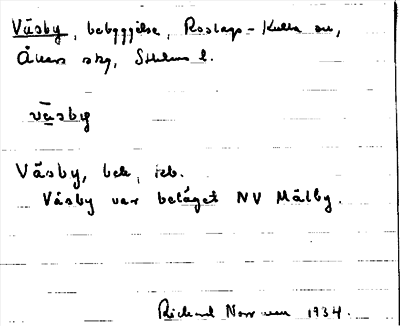 Väsby, bebyggelse, Roslags-Kulla sn,
Åkers skg, Sthlms l.
väsby
Väsby, beb, ieb.
Väsby var beläget NV Mälby.
Richard Norrman 1934.